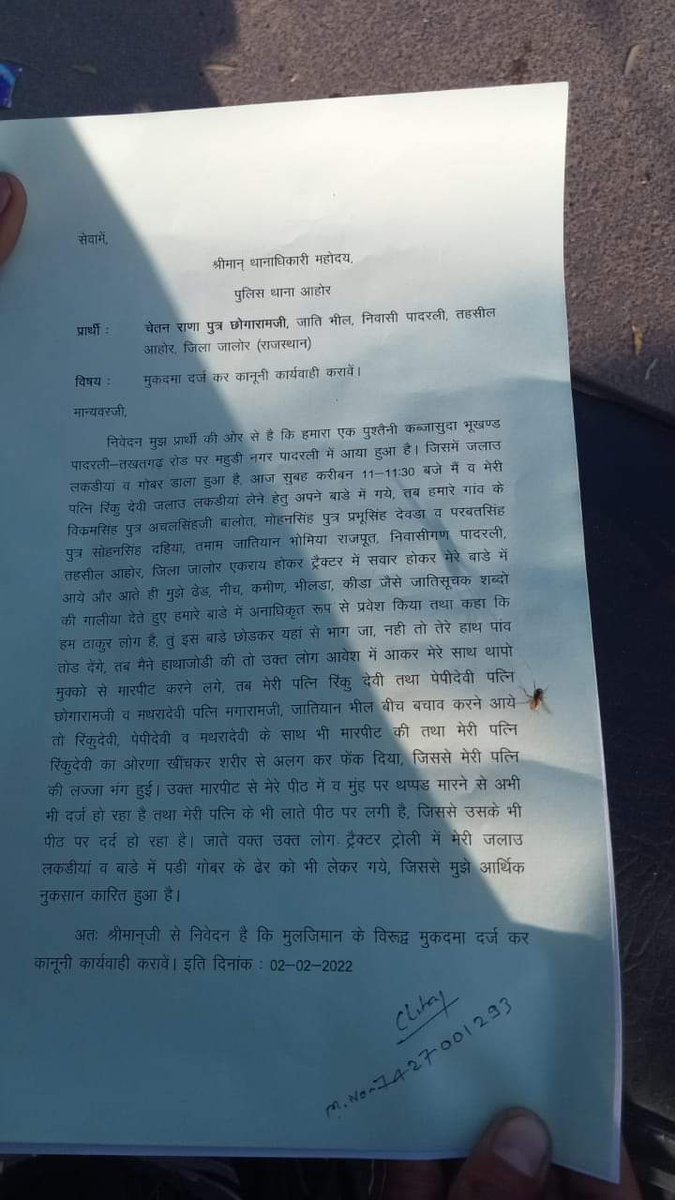 सेवामें,
श्रीमान् थानाधिकारी महोदय,
पुलिस थाना आहोर
प्रार्थी : चेतन राणा पुत्र छोगारामजी, जाति भील, निवासी पादरली, तहसील
आहोर, जिला जालोर (राजस्थान)
विषय : मुकदमा दर्ज कर कानूनी कार्यवाही करावें।
मान्यवरजी,
निवेदन मुझ प्रार्थी की ओर से है कि हमारा एक पुश्तैनी कब्जासुदा भूखण्ड
पादरली–तखतगढ़ रोड पर महुडी नगर पादरली में आया हुआ है। जिसमें जलाउ
लकडीयां व गोबर डाला हुआ है, आज सुबह करीबन 11–11:30 बजे मैं व मेरी
पत्नि रिंकु देवी जलाउ लकडीयां लेने हेतु अपने बाडे में गये, तब हमारे गांव के
विक्रमसिंह पुत्र अचलसिंहजी बालोत, मोहनसिंह पुत्र प्रभूसिंह देवडा व परबतसिंह
पुत्र सोहनसिंह दहिया, तमाम जातियान भोमिया राजपूत, निवासीगण पादरली,
तहसील आहोर, जिला जालोर एकराय होकर ट्रैक्टर में सवार होकर मेरे बाडे में
आये और आते ही मुझे ढेड, नीच, कमीण, भीलडा, कीडा जैसे जातिसूचक शब्दो
की गालीया देते हुए हमारे बाडे में अनाधिकृत रूप से प्रवेश किया तथा कहा कि
हम ठाकुर लोग है, तुं इस बाडे छोडकर यहां से भाग जा, नही तो तेरे हाथ पांव
तोड देंगे, तब मैने हाथाजोडी की तो उक्त लोग आवेश में आकर मेरे साथ थापो
मुक्को से मारपीट करने लगे, तब मेरी पत्नि रिंकु देवी तथा पेपीदेवी पत्नि
छोगारामजी व मथरादेवी पत्नि मगारामजी, जातियान भील बीच बचाव करने आये
तो रिंकुदेवी, पेपीदेवी व मथरादेवी के साथ भी मारपीट की तथा मेरी पत्नि
रिंकुदेवी का ओरणा खींचकर शरीर से अलग कर फेंक दिया, जिससे मेरी पत्नि
की लज्जा भंग हुई। उक्त मारपीट से मेरे पीठ में व मुंह पर थप्पड मारने से अभी
भी दर्ज हो रहा है तथा मेरी पत्नि के भी लाते पीठ पर लगी है, जिससे उसके भी
पीठ पर दर्द हो रहा है। जाते वक्त उक्त लोग ट्रैक्टर ट्रोली में मेरी जलाउ
लकडीयां व बाडे में पडी गोबर के ढेर को भी लेकर गये, जिससे मुझे आर्थिक
नुकसान कारित हुआ है।
अतः श्रीमान्जी से निवेदन है कि मुलजिमान के विरूद्व मुकदमा दर्ज कर
कानूनी कार्यवाही करावें। इति दिनांक : 02–02–2022
M.No-7427001293